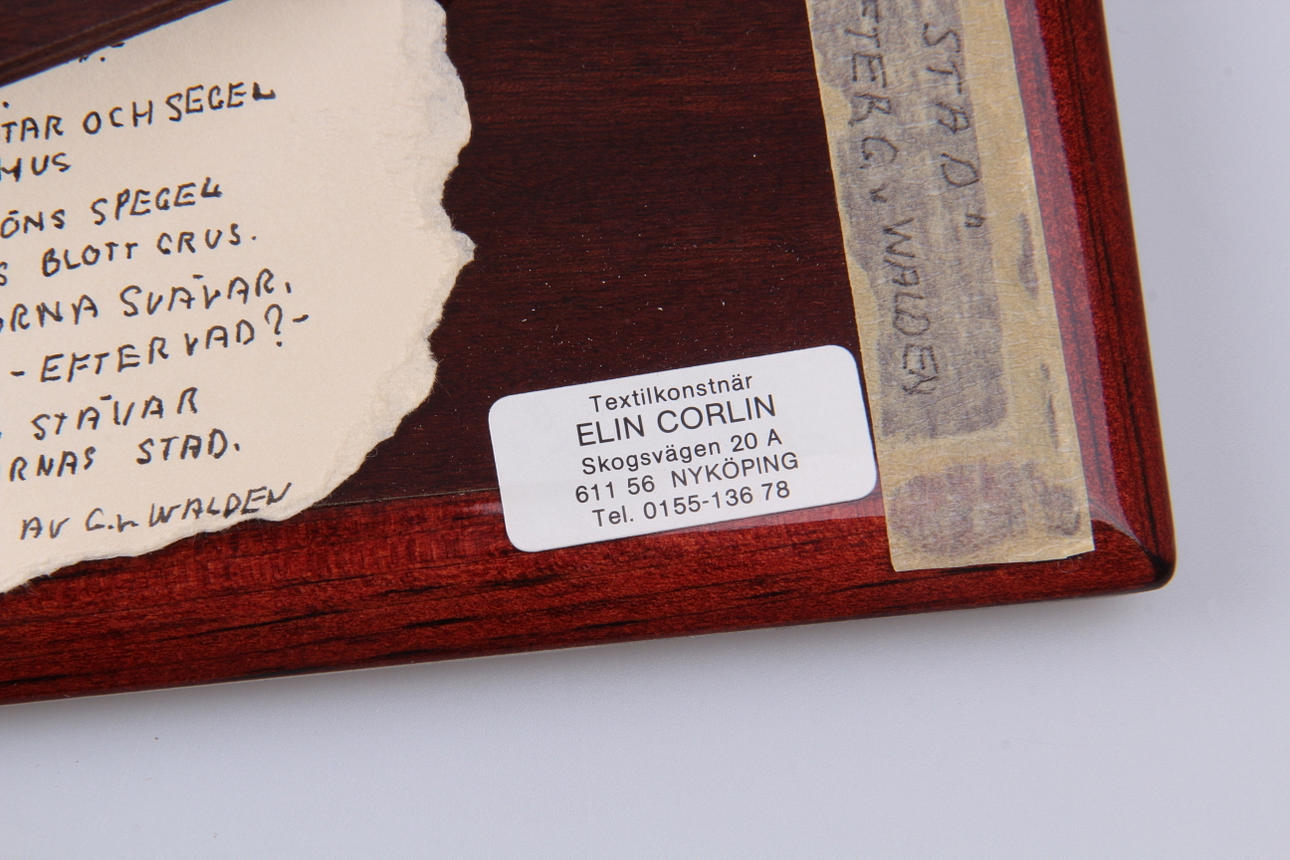 TAR OCH SEGEL
HUS
ÖNS SPEGEL
S BLOTT GRUS.
ORNA SVÄVAR,
- EFTER VAD? -
STÄVAR
RNAS STAD.
AV G.v WALDEN
Textilkonstnär
ELIN CORLIN
Skogsvägen 20 A
611 56 NYKÖPING
Tel. 0155-136 78
STAD"
FTER G v WALDEN